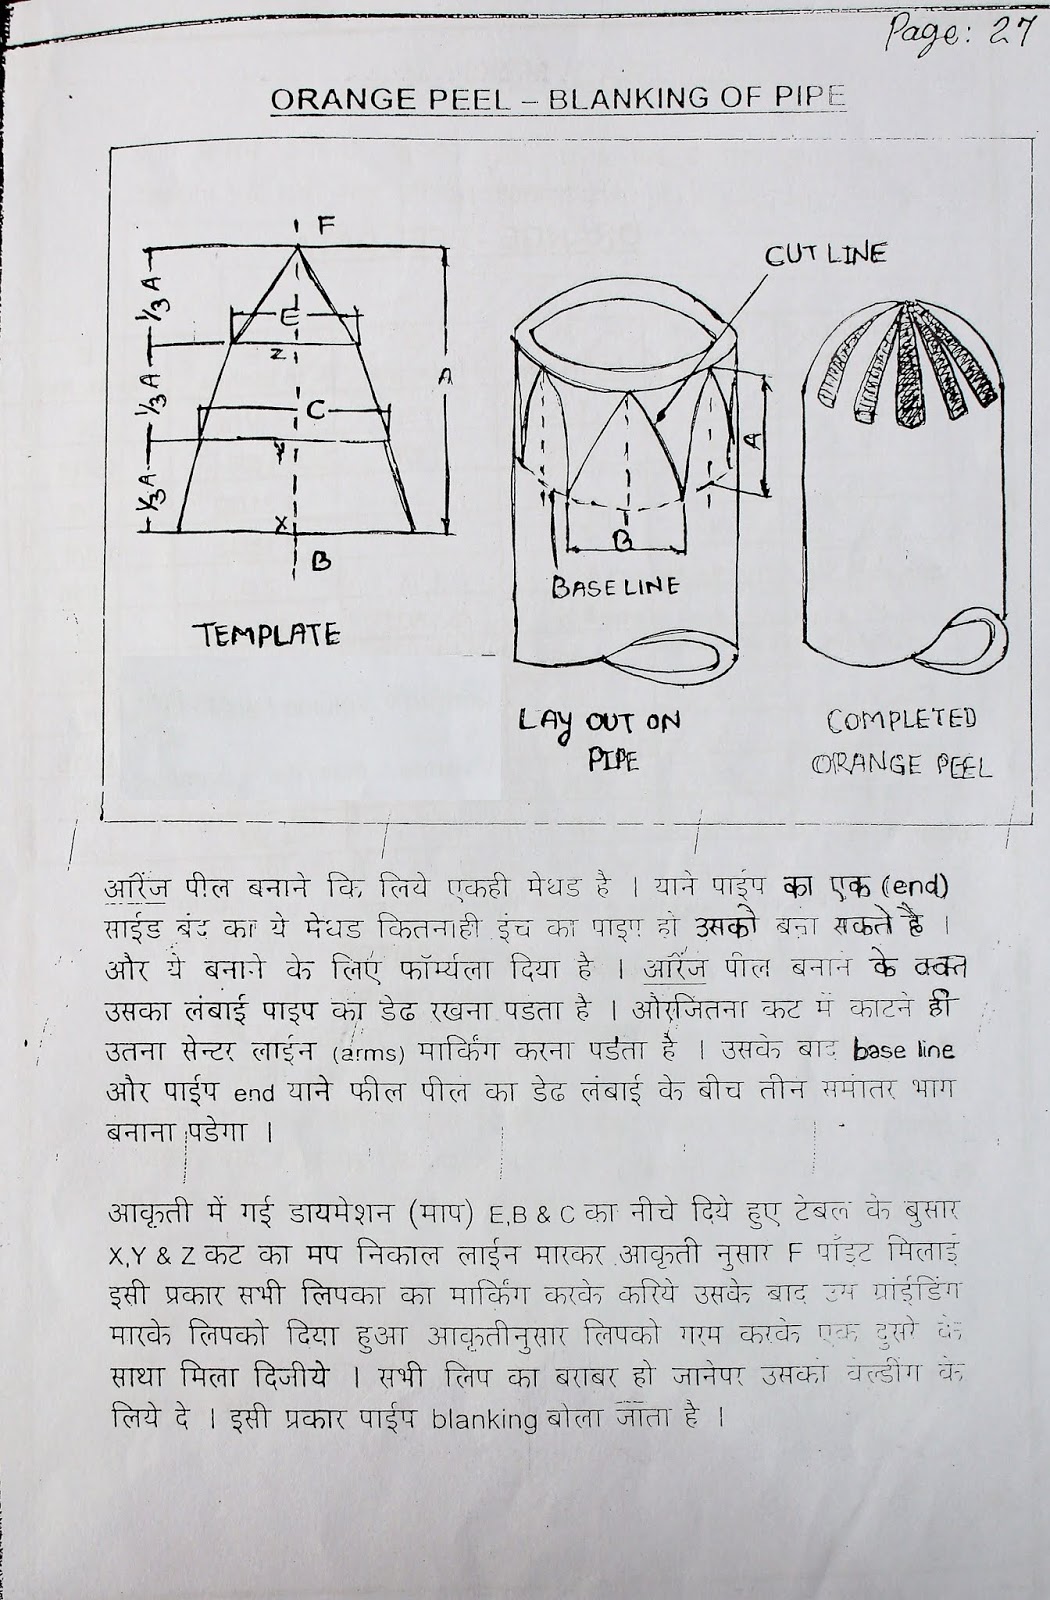 Page: 27
ORANGE PEEL – BLANKING OF PIPE
F
CUT LINE
1/3 A
E
Z
1/3 A
A
C
Y
A
1/3 A
X
B
B
BASE LINE
TEMPLATE
LAY OUT ON
PIPE
COMPLETED
ORANGE PEEL
ऑरेंज पील बनाने कि लिये एकही मेथड है । याने पाईप का एक (end)
साईड बंद का ये मेथड कितनाही इंच का पाइप हो उसको बना सकते है ।
और ये बनाने के लिए फॉर्म्यला दिया है । ऑरेंज पील बनान के वक्त
उसका लंबाई पाइप का डेढ रखना पडता है । औरजितना कट में काटने ही
उतना सेन्टर लाईन (arms) मार्किंग करना पडता है । उसके बाद base line
और पाईप end याने फील पील का डेढ लंबाई के बीच तीन समांतर भाग
बनाना पडेगा ।
आकृती में गई डायमेशन (माप) E,B & C का नीचे दिये हुए टेबल के बुसार
X,Y & Z कट का मप निकाल लाईन मारकर आकृती नुसार F पॉइट मिलाई
इसी प्रकार सभी लिपका का मार्किंग करके करिये उसके बाद ग्रांईडिंग
मारके लिपको दिया हुआ आकृतीनुसार लिपको गरम करके एक दुसरे के
साथा मिला दिजीये । सभी लिप का बराबर हो जानेपर उसको वेल्डींग के
लिये दे । इसी प्रकार पाईप blanking बोला जाता है ।